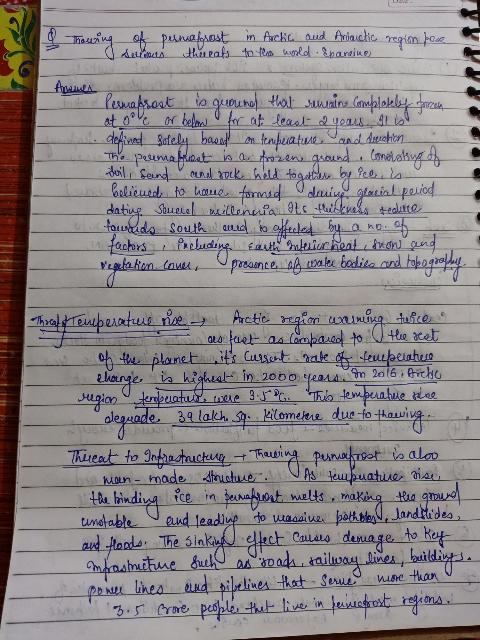 Q Thawing of permafrost in Arctic and Antarctic region pose
serious threats to the world. Examine
Answer
Permafrost is ground that remain completely frozen
at 0°C or below for at least 2 years. It is
defined solely based on temperature and duration
The permafrost is a frozen ground, consisting of
soil, sand and rock held together by ice, is
believed to have formed during glacial period
dating several millennia. Its thickness reduce
towards south and is affected by a no. of
factors, including earth interior heat, snow and
vegetation cover, presence of water bodies and topography.
Threat of Temperature rise → Arctic region warming twice
as fast as compared to the rest
of the planet, it's current rate of temperature
change is highest in 2000 years. In 2016, Arctic
region temperature were 3.5°C. This temperature rise
degrade 39 lakh sq. kilometere due to thawing.
Threat to Infrastructure → Thawing permafrost is also
man-made structure. As temperature rise,
the binding ice in permafrost melts, making the ground
unstable and leading to massive potholes, landslides,
and floods. The sinking effect causes damage to key
infrastructure such as roads, railway lines, buildings.
power lines and pipelines that serve more than
3.5 Crore people that live in permafrost regions.